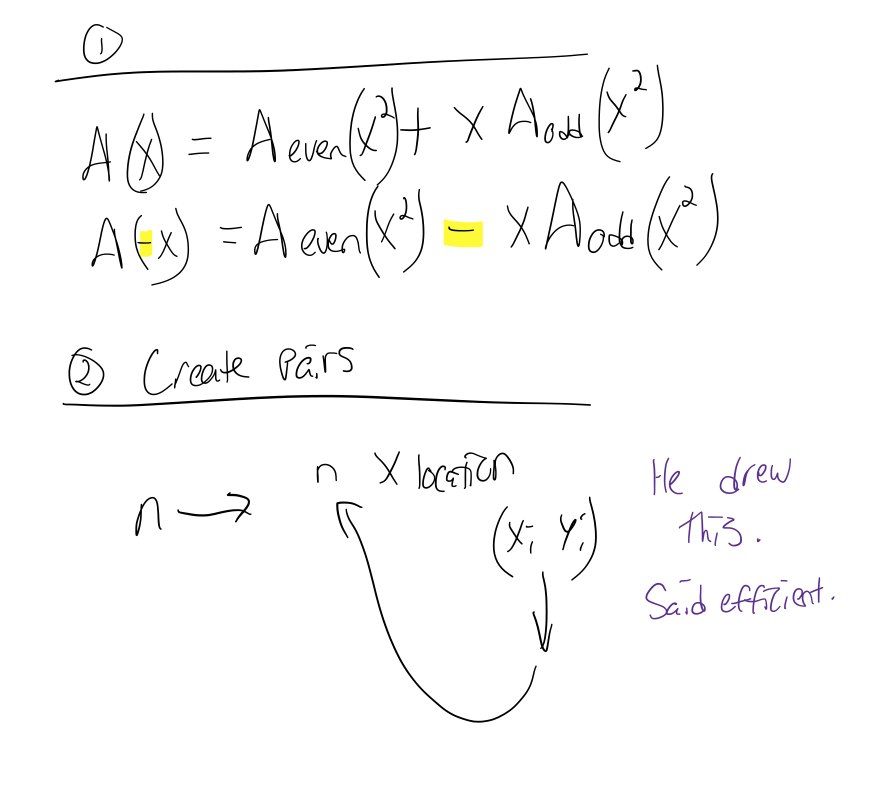 ①
A(x) = A even(x²) + x A odd (x²)
A(-x) = A even(x²) - x A odd (x²)
② Create Pairs
n → n X location
(xᵢ, yᵢ)
He drew
this.
Said efficient.